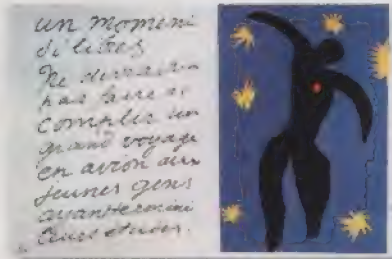 un moment
de libres.
Ne devrait-on
pas faire ac
complir un
grand voyage
en avion aux
jeunes gens
ayant terminé
leurs études.